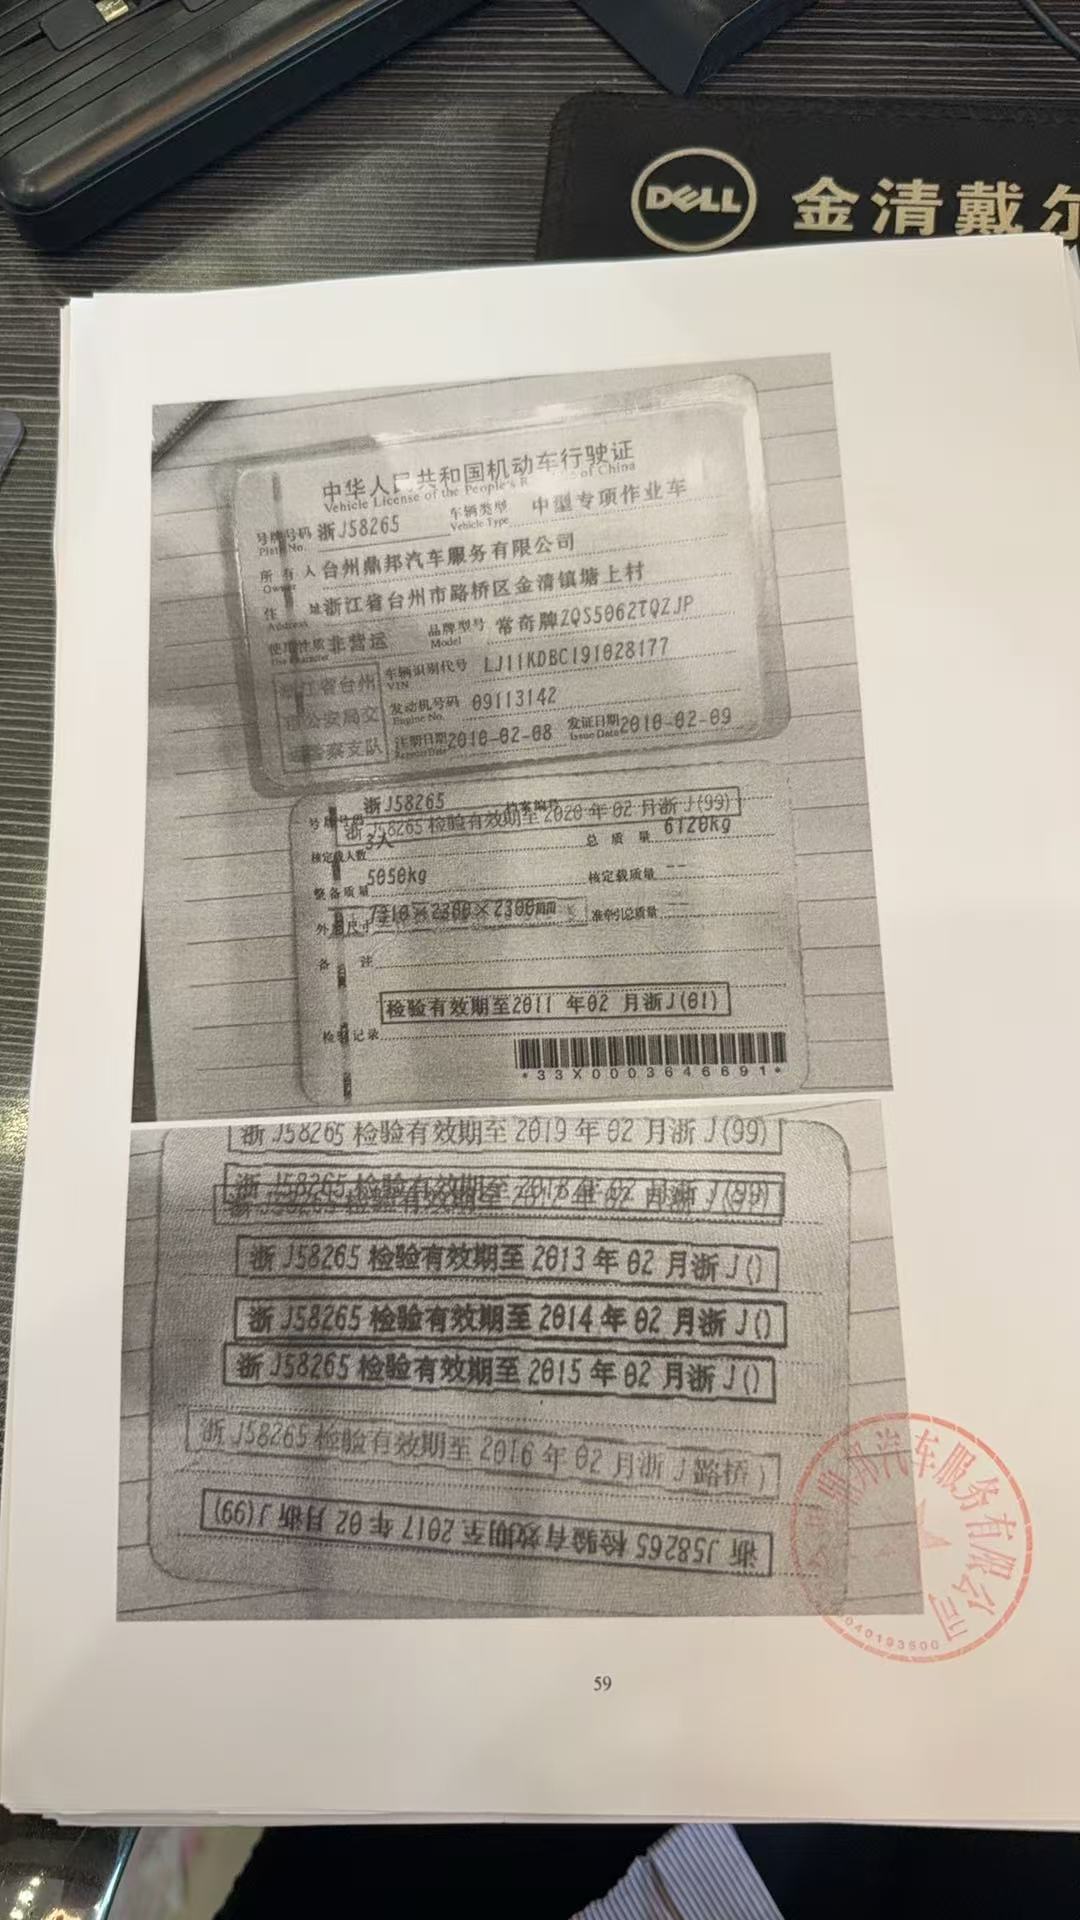 DELL 金清戴尔
中华人民共和国机动车行驶证
Vehicle License of the People's of China
号牌号码 浙J58265 车辆类型 中型专项作业车
Plate No. Vehicle Type
所有人 台州鼎邦汽车服务有限公司
Owner
住址 浙江省台州市路桥区金清镇塘上村
Address
使用性质 非营运 品牌型号 常奇牌ZQS5062TQZJP
Use Character Model
浙江省台州 车辆识别代号 LJ11KDBC191028177
VIN
市公安局交 发动机号码 09113142
Engine No.
警察支队 注册日期 2010-02-08 发证日期 2010-02-09
Register Date Issue Date
号牌号码 浙J58265 档案编号
浙J58265 检验有效期至 2020 年 02 月浙J(99)
核定载人数 3人 总质量 6120kg
整备质量 5050kg 核定载质量 --
外廓尺寸 ×2300×2300mm 准牵引总质量 --
备注
检验有效期至2011 年02 月浙J(01)
检验记录
*33X0003646691*
浙J58265 检验有效期至 2019 年 02 月浙J(99)
浙J58265 检验有效期至 2018 年 02 月浙J(99)
浙J58265 检验有效期至 2012 年 02 月浙J
浙J58265 检验有效期至 2013 年 02 月浙J()
浙J58265 检验有效期至 2014 年 02 月浙J()
浙J58265 检验有效期至 2015 年 02 月浙J()
浙J58265 检验有效期至 2016 年 02 月浙J路桥)
浙J58265 检验有效期至 2017 年 02 月浙J(99)
鼎邦汽车服务有限公司
040193500
59